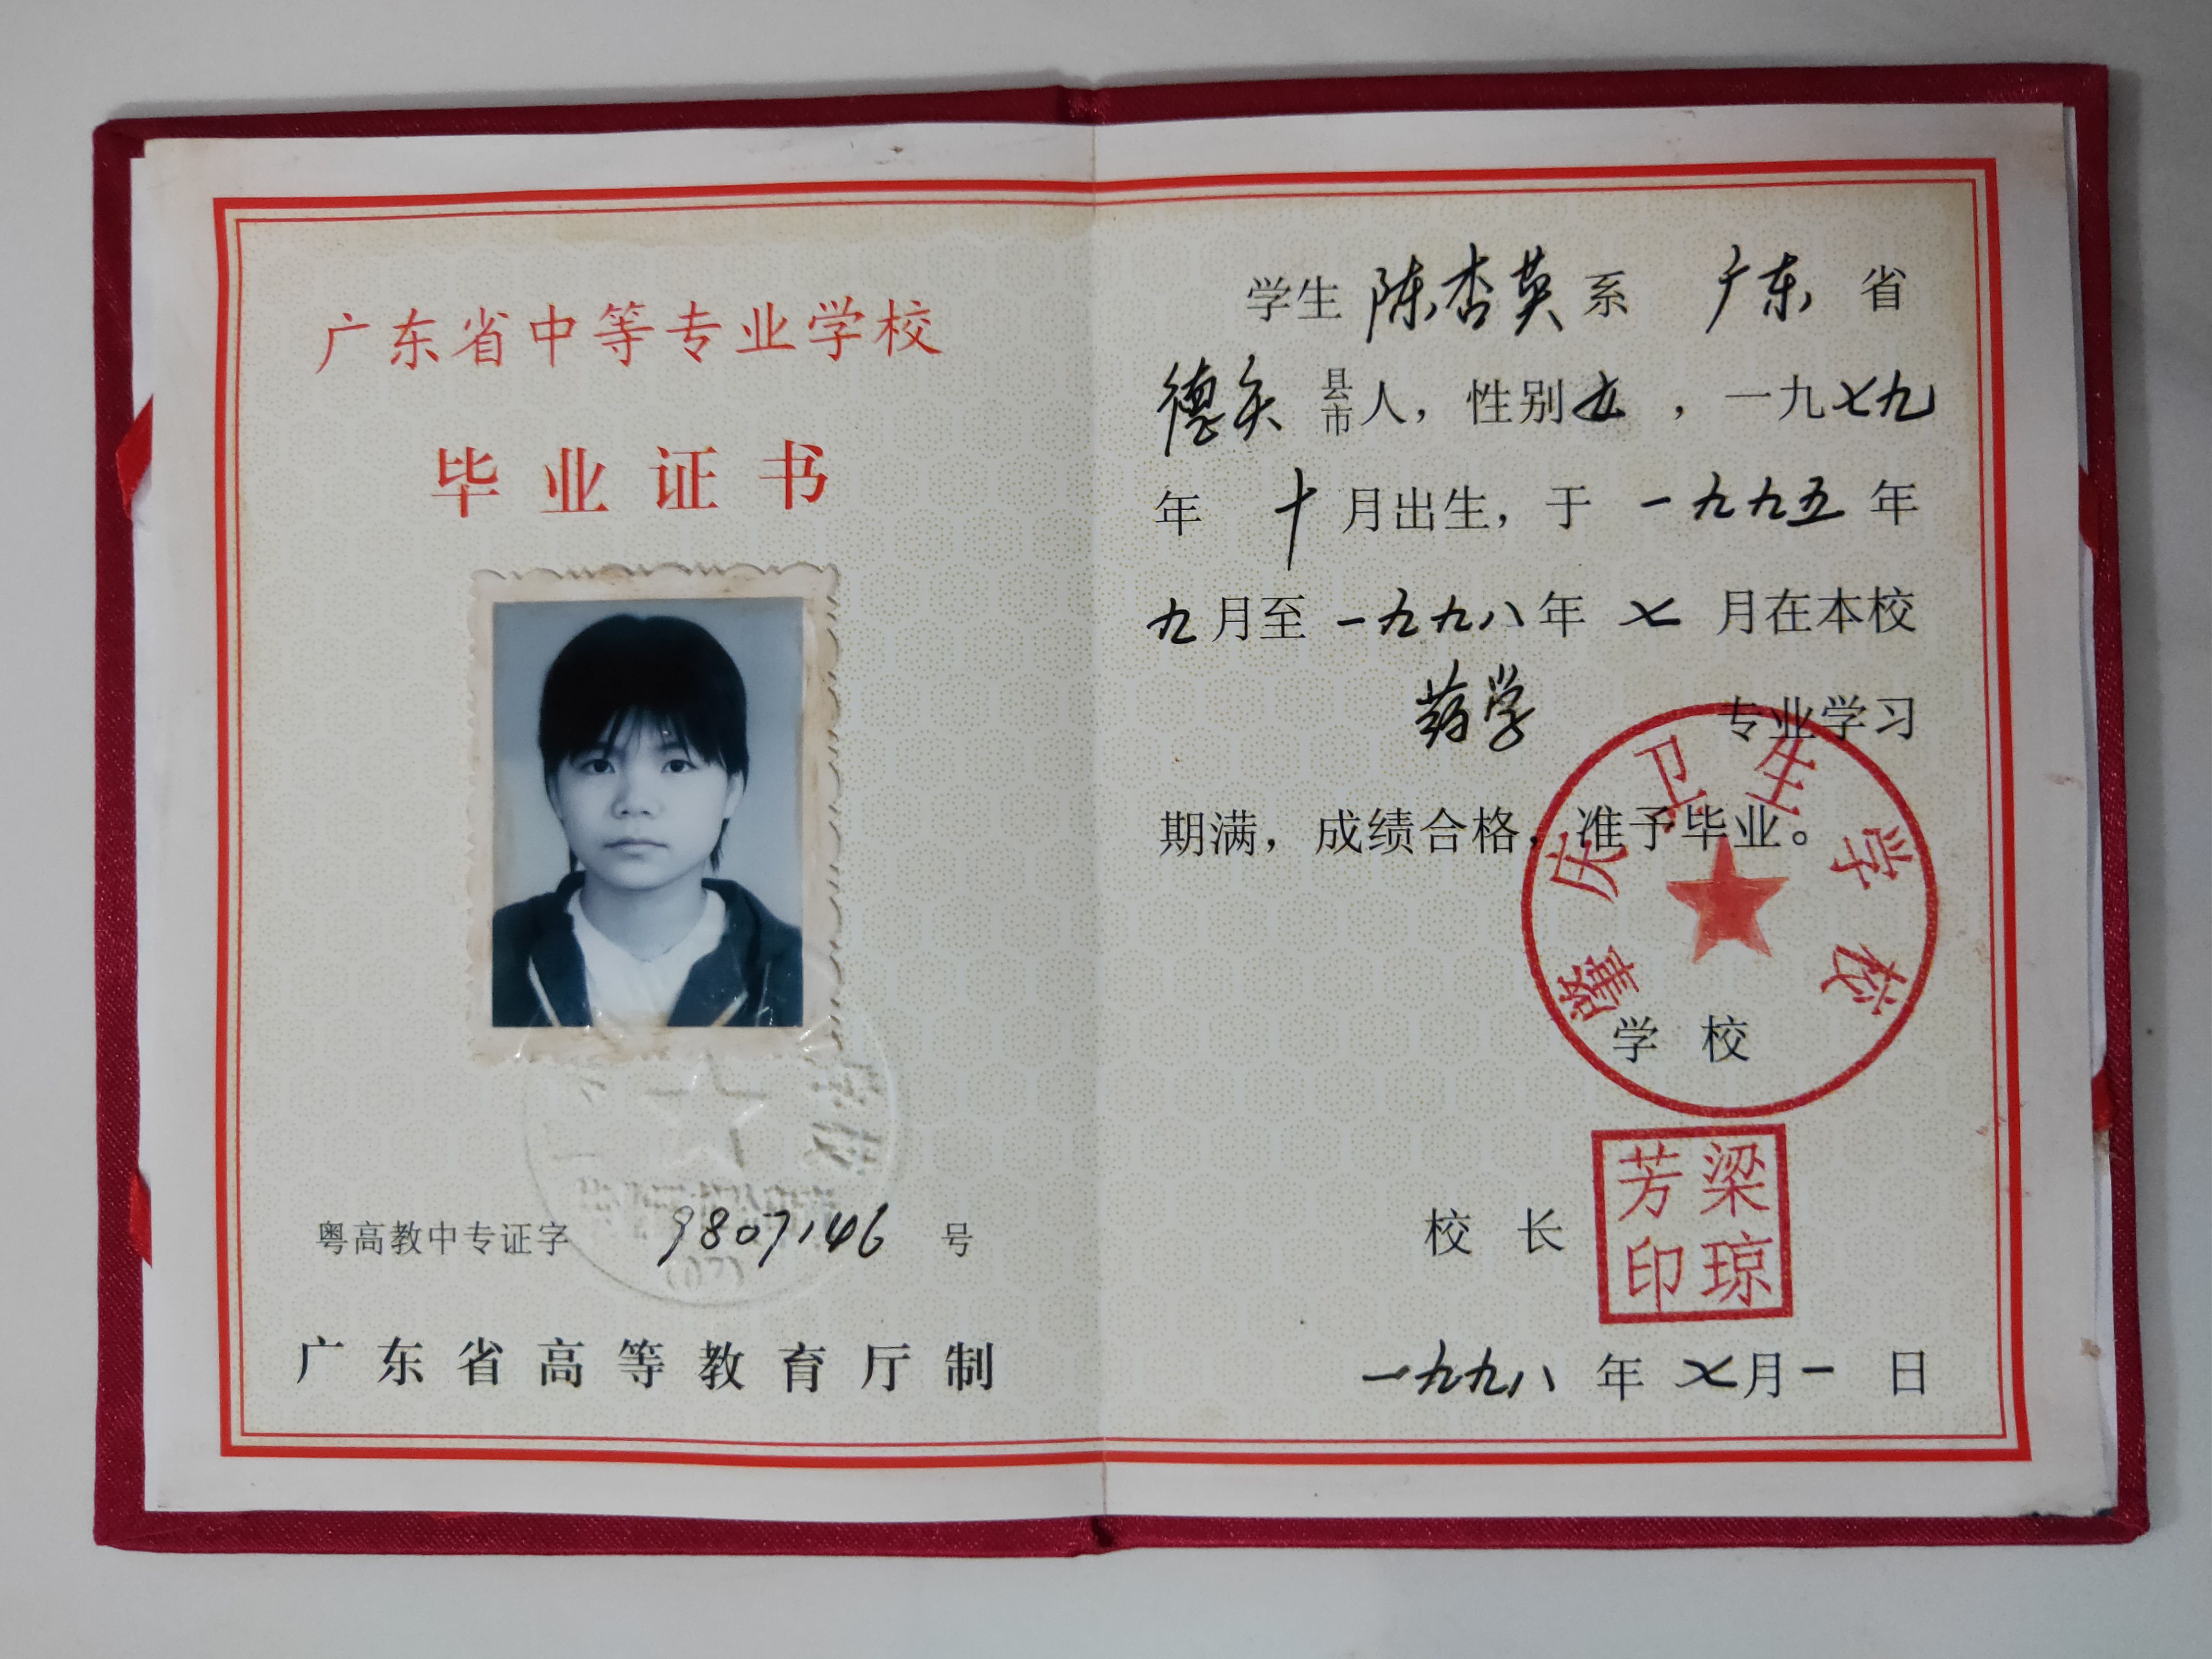 广东省中等专业学校
毕业证书
粤高教中专证字 9807146 号
广东省高等教育厅制
学生 陈杏英 系 广东 省
德庆 县市人，性别女，一九七九
年 十 月出生，于 一九九五 年
九月至 一九九八年 七 月在本校
药学 专业学习
期满，成绩合格，准予毕业。
肇庆卫生学校
学 校
校 长
梁琼芳印
一九九八 年 七月一 日